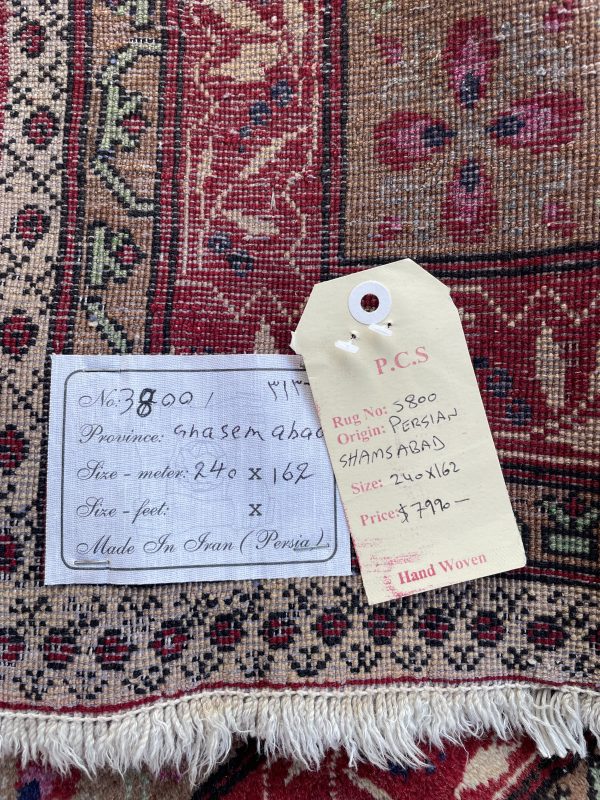 No: 38001 ۳۱۳
Province: Ghasem abad
Size - meter: 240 x 162
Size - feet: x
Made In Iran (Persia)
P.C.S
Rug No: 5800
Origin: PERSIAN
SHAMSABAD
Size: 240X162
Price: $7990—
Hand Woven